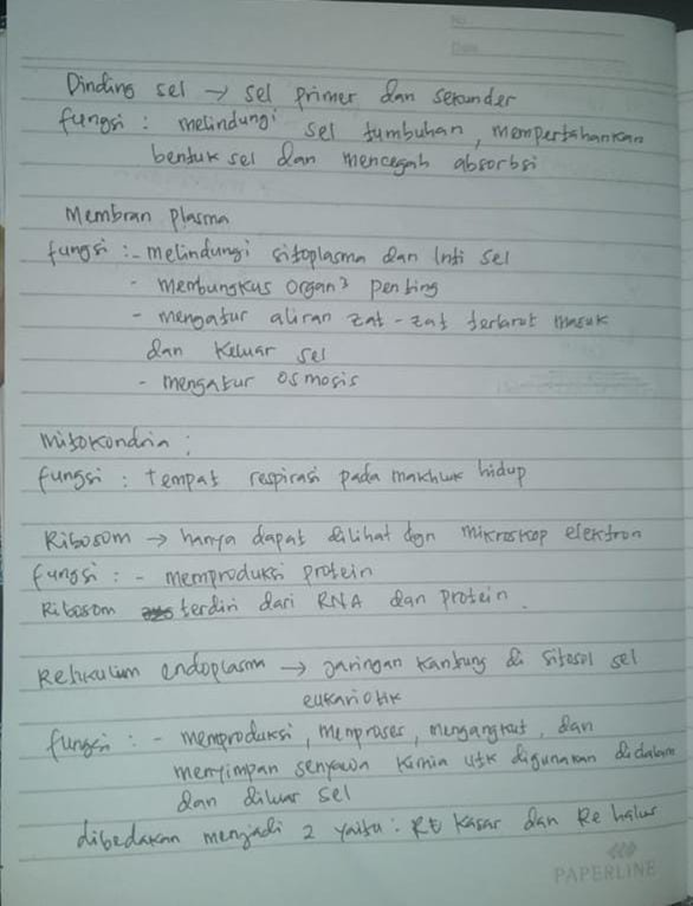 No
Date
Dinding sel → sel primer dan sekunder
fungsi : melindungi sel tumbuhan, mempertahankan
bentuk sel dan mencegah absorbsi
Membran plasma
fungsi :- melindungi sitoplasma dan Inti sel
- membungkus organ² penting
- mengatur aliran zat-zat terlarut masuk
dan keluar sel
- mengatur osmosis
mitokondria :
fungsi : tempat respirasi pada makhluk hidup
Ribosom → hanya dapat dilihat dgn mikroskop elektron
fungsi : - memproduksi protein
Ribosom terdiri dari RNA dan protein.
Retikulum endoplasma → Jaringan kantung di sitosol sel
eukariotik
fungsi : - memproduksi, memproses, mengangkut, dan
menyimpan senyawa kimia utk digunakan didalam
dan diluar sel
dibedakan menjadi 2 yaitu : RE kasar dan Re halus
PAPERLINE